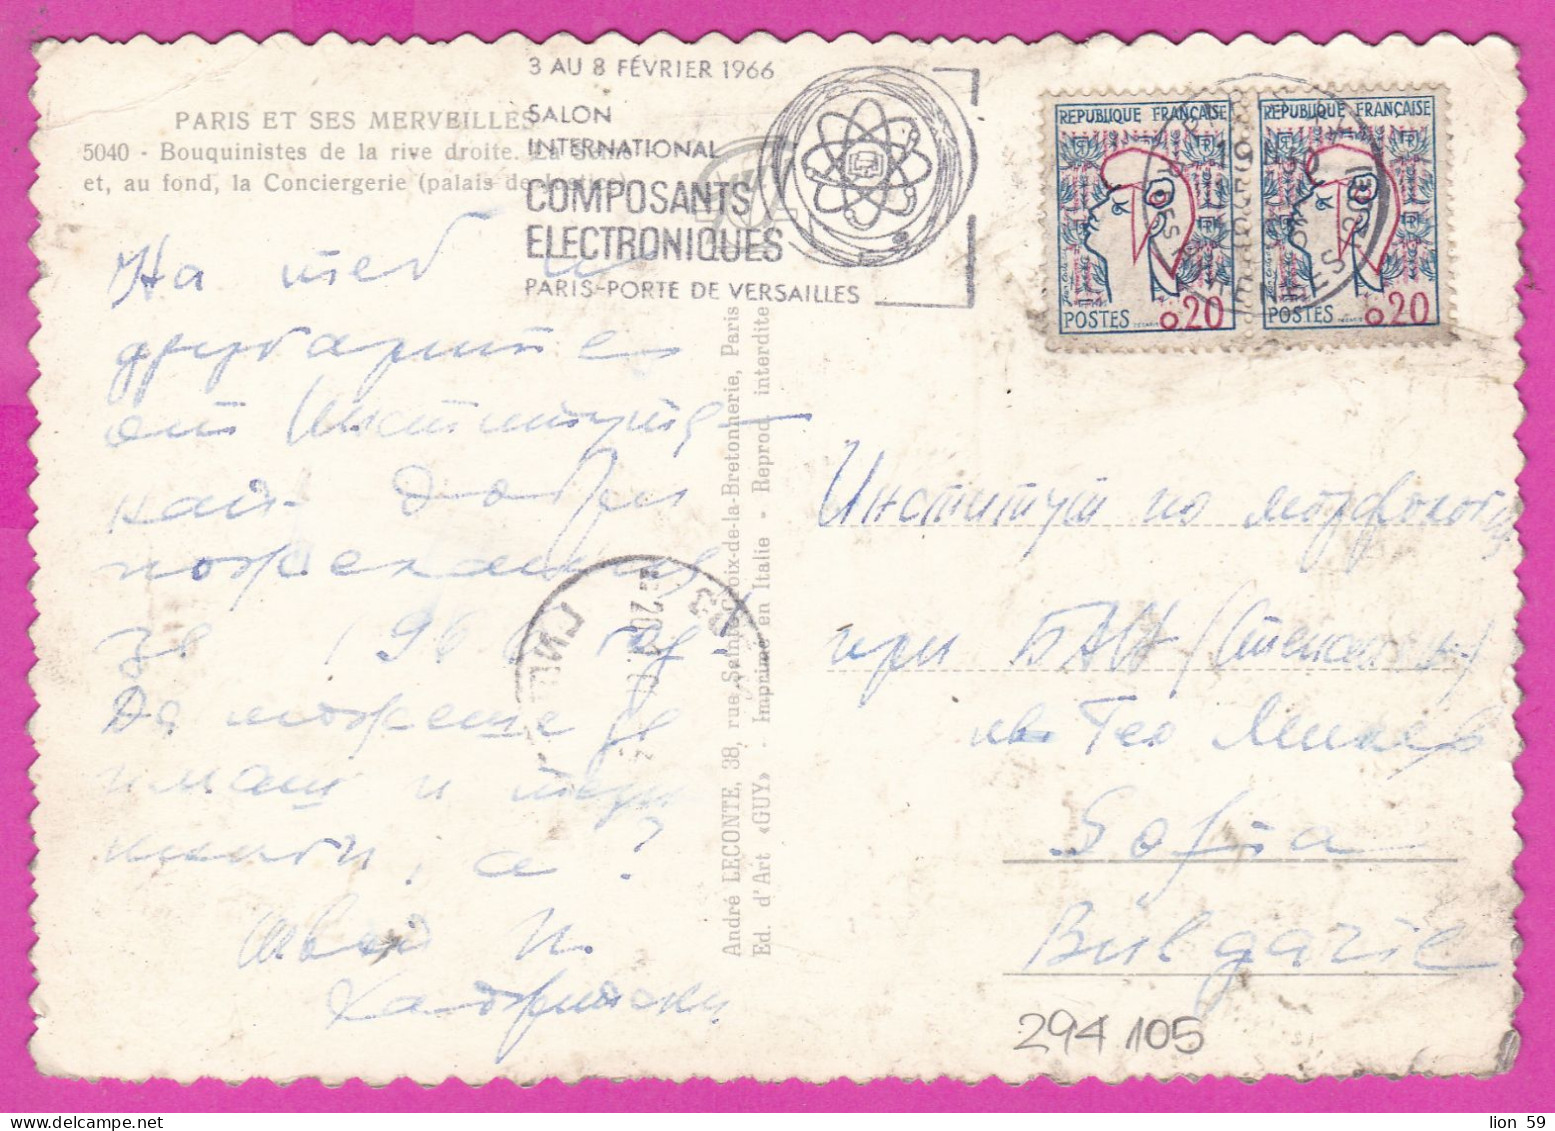 3 AU 8 FÉVRIER 1966
SALON
INTERNATIONAL
COMPOSANTS
ELECTRONIQUES
PARIS-PORTE DE VERSAILLES
PARIS ET SES MERVEILLES
5040 - Bouquinistes de la rive droite. La Seine
et, au fond, la Conciergerie (palais de Justice)
REPUBLIQUE FRANÇAISE
POSTES 0.20
REPUBLIQUE FRANÇAISE
POSTES 0.20
На теб и
другарите
от Института -
най- добри
пожелания
за 1966 год.
Да можеше да
имаш и тази
, а?
Твой И.
André LECONTE, 38, rue Sainte-Croix-de-la-Bretonnerie, Paris
Ed. d'Art «GUY» - Imprimé en Italie - Reprod. interdite
Институт по морфология
при БАН
Гео Милев
Sofia
Bulgarie
294 105
lion 59